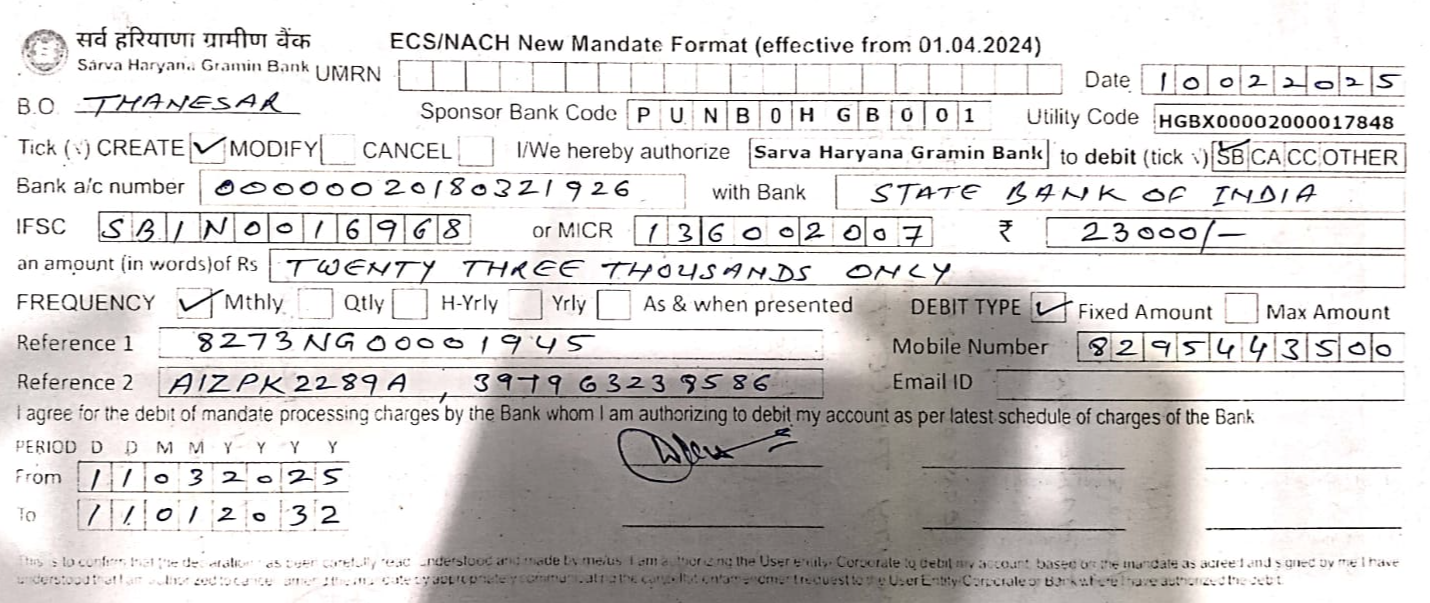 सर्व हरियाणा ग्रामीण बैंक
Sarva Haryana Gramin Bank
ECS/NACH New Mandate Format (effective from 01.04.2024)
UMRN Date 10022025
B.O. THANESAR Sponsor Bank Code PUNB0HGB001 Utility Code HGBX00002000017848
Tick (√) CREATE ✓ MODIFY CANCEL I/We hereby authorize Sarva Haryana Gramin Bank to debit (tick √) SB CA CC OTHER
Bank a/c number 00000020180321926 with Bank STATE BANK OF INDIA
IFSC SBIN0016968 or MICR 136002007 ₹ 23000/-
an amount (in words)of Rs TWENTY THREE THOUSANDS ONLY
FREQUENCY ✓ Mthly Qtly H-Yrly Yrly As & when presented DEBIT TYPE ✓ Fixed Amount Max Amount
Reference 1 8273NG00001945 Mobile Number 8295443500
Reference 2 AIZPK2289A, Email ID
I agree for the debit of mandate processing charges by the Bank whom I am authorizing to debit my account as per latest schedule of charges of the Bank
PERIOD D D M M Y Y Y Y
From 11032025
To 11012032
This is to confirm that the declaration has been carefully read understood and made by me/us. I am authorizing the User entity Corporate to debit my account based on the mandate as agree and signed by me I have
understood that I am authorized to cancel